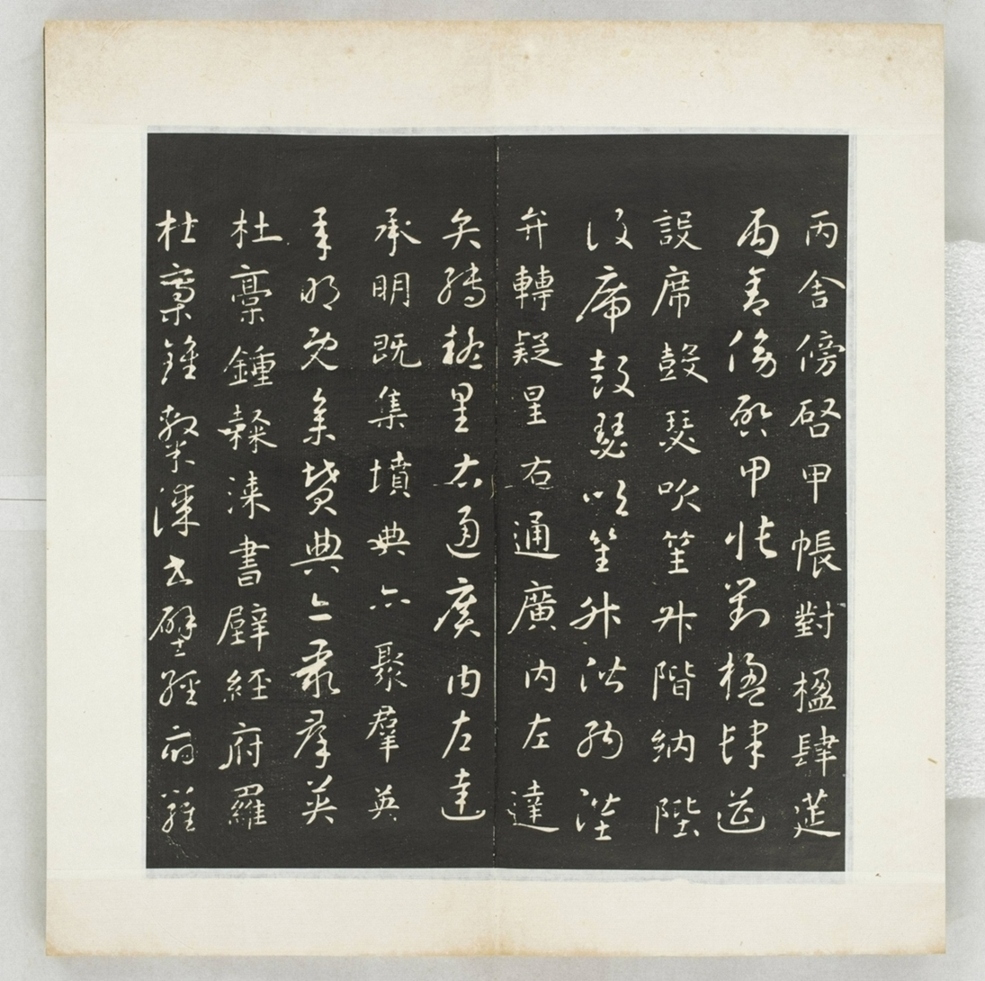 丙舍傍啓甲帳對楹肆莚
丙舍傍啓甲帳對楹肆莚
設席鼓瑟吹笙升階納陛
設席鼓瑟吹笙升階納陛
弁轉疑星右通廣内左達
弁轉疑星右通廣内左達
承明既集墳典亦聚羣英
承明既集墳典亦聚羣英
杜稾鍾隸漆書壁經府羅
杜稾鍾隸漆書壁經府羅